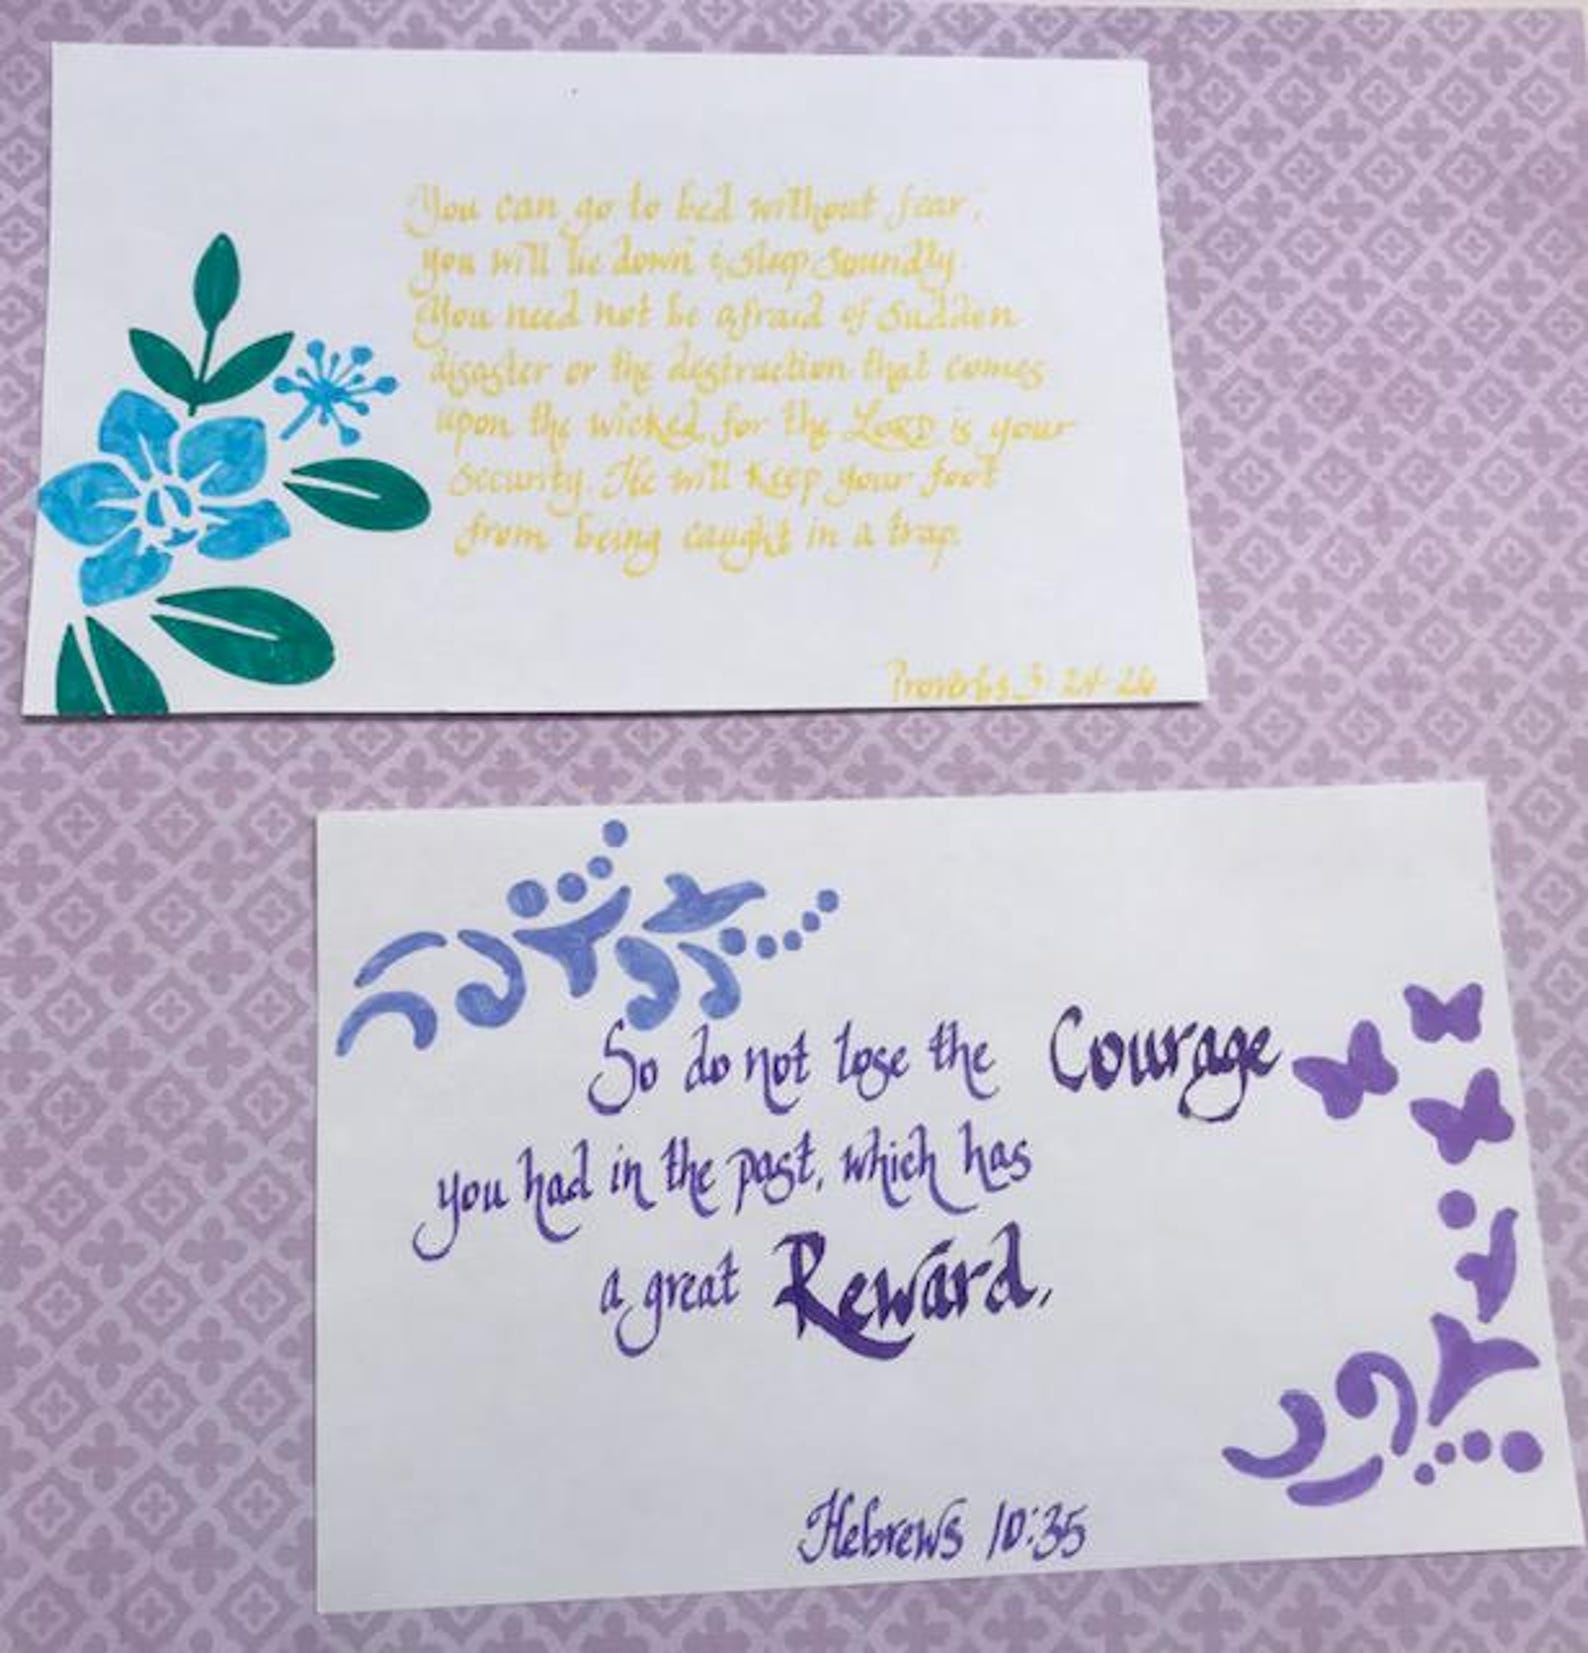 You can go to bed without fear;
you will lie down & sleep soundly.
You need not be afraid of sudden
disaster or the destruction that comes
upon the wicked, for the LORD is your
security. He will keep your foot
from being caught in a trap.
Proverbs 3:24-26
So do not lose the Courage
you had in the past, which has
a great Reward.
Hebrews 10:35